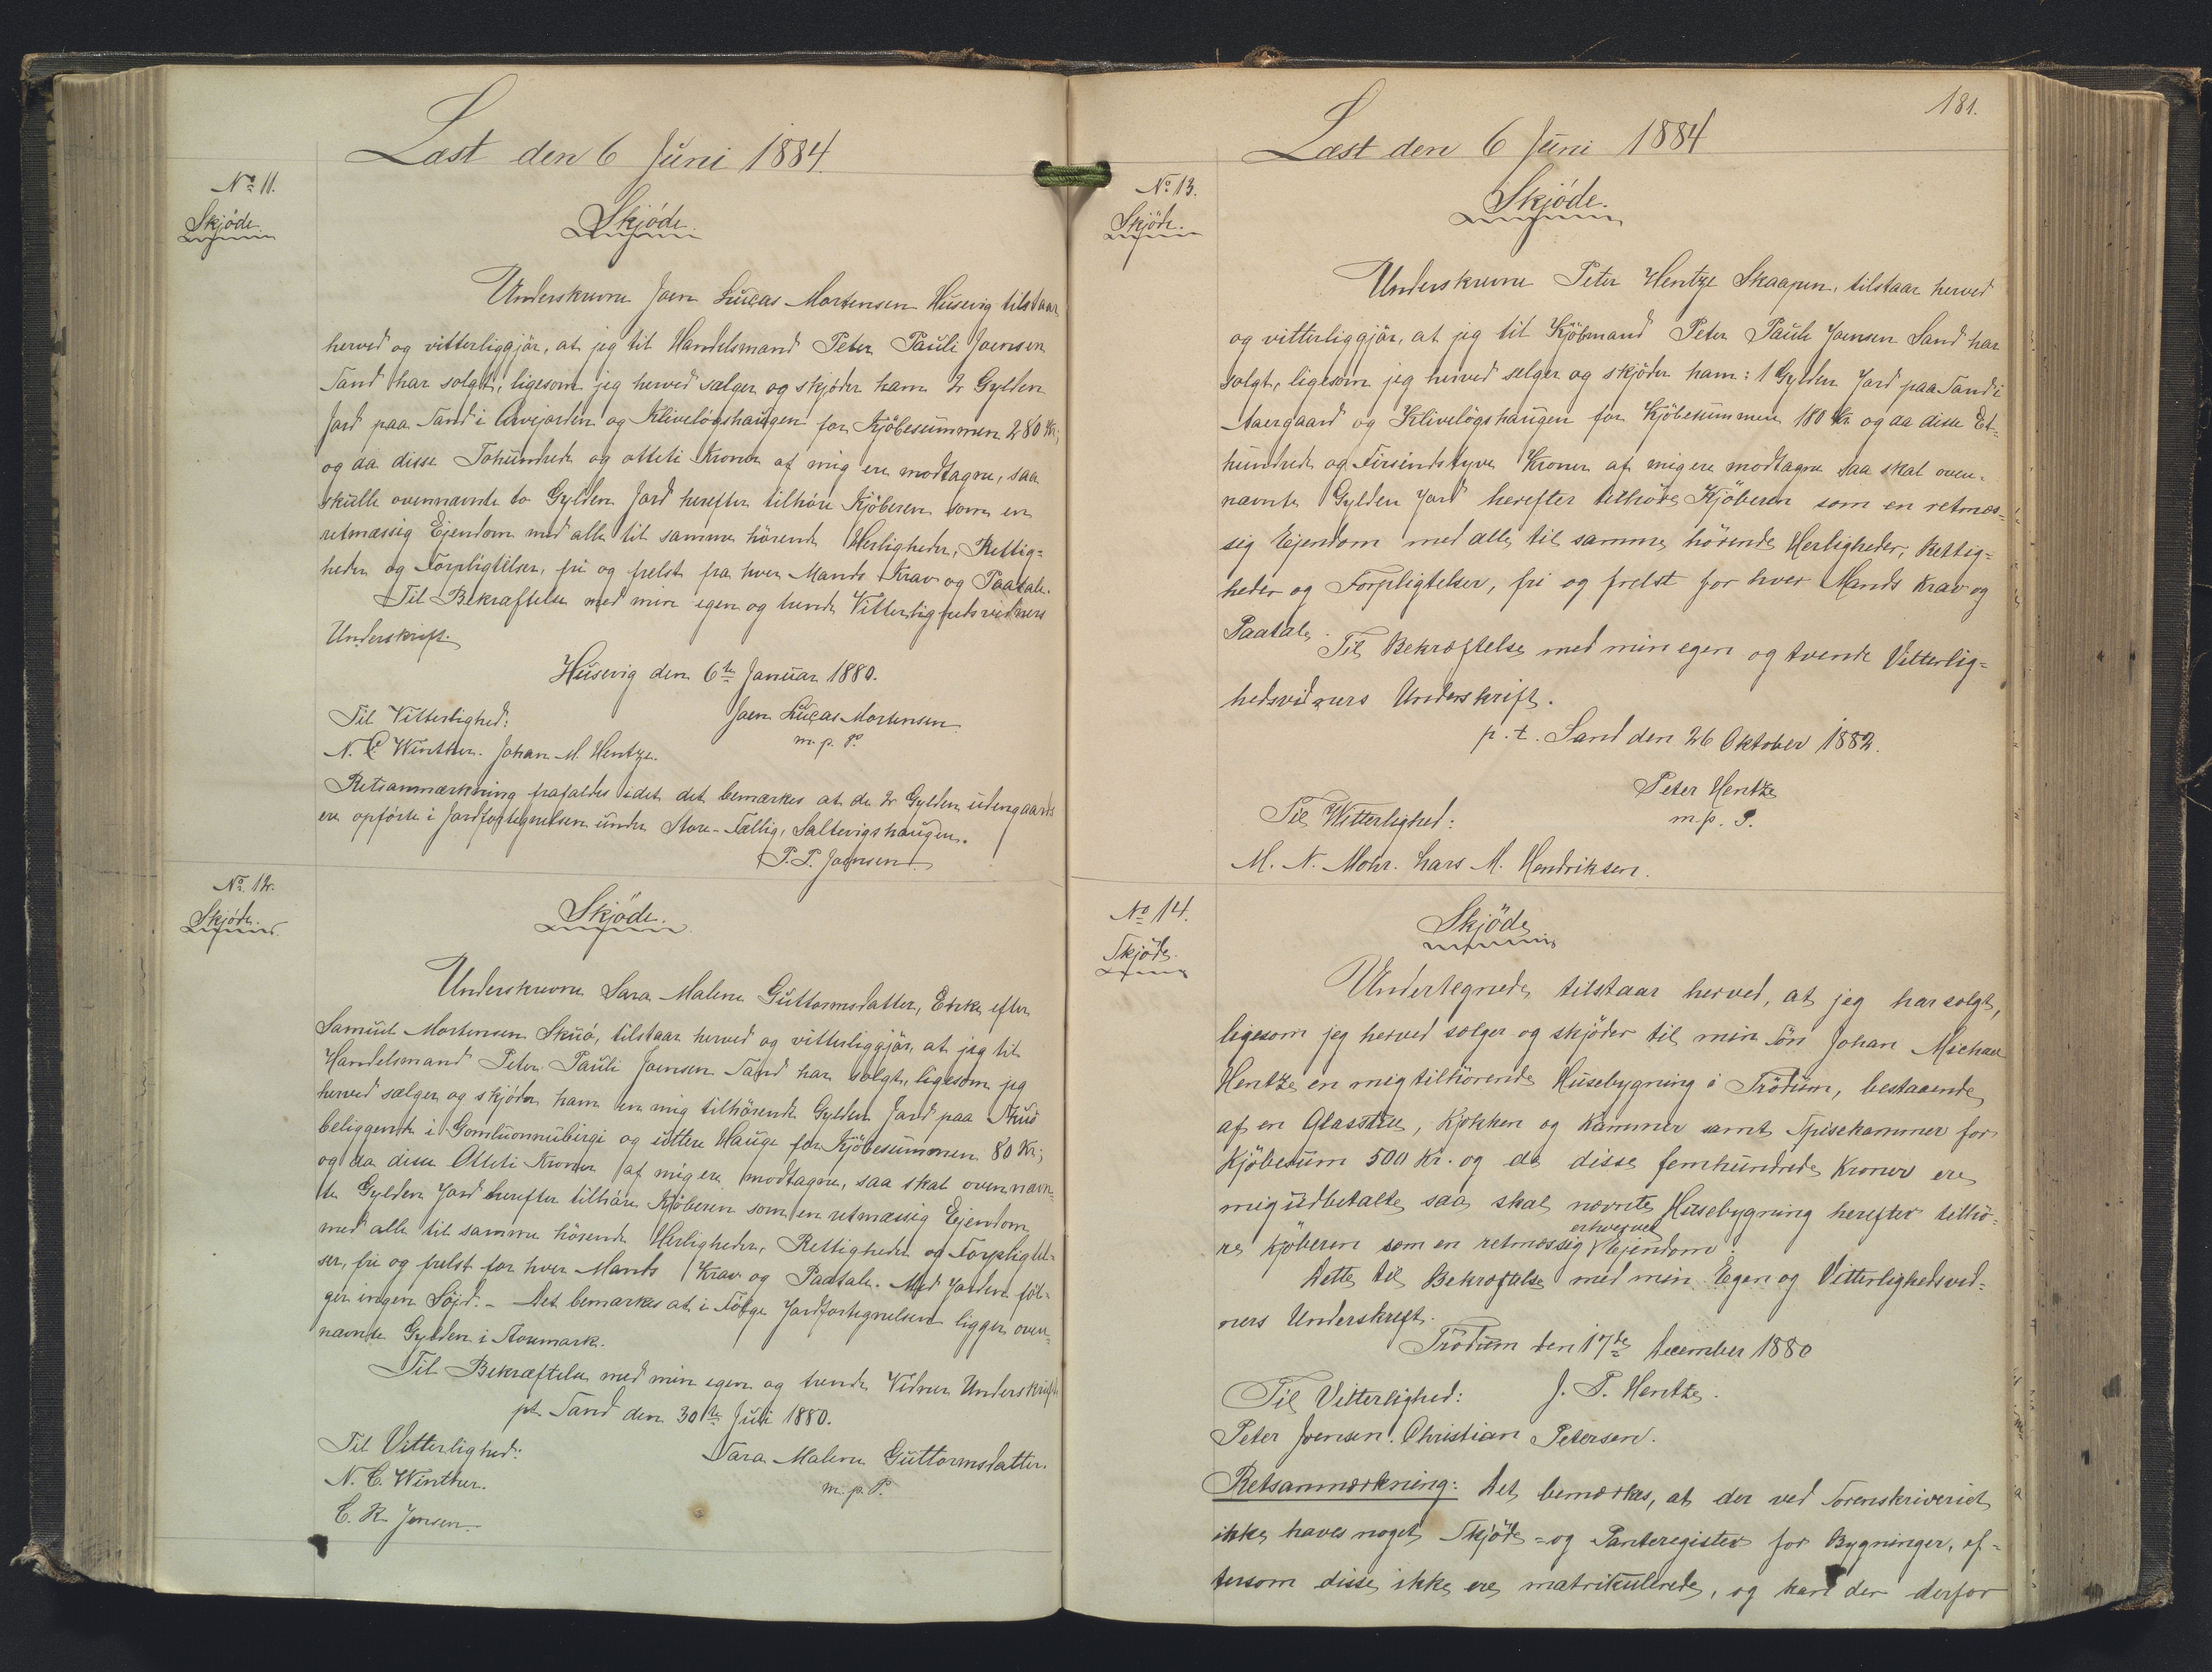 Læst den 6 Juni 1884.
No 11.
Skjöde.
Skjöde.
Underskrevne Joen Lucas Mortensen Husevig tilstaar
herved og vitterliggjör, at jeg til Handelsmand Peter Pauli Joensen
Sand har solgt, ligesom jeg herved sælger og skjöder ham 2 Gylden
Jord paa Sand i Arvejorden og Kliveløgshaugen for Kjöbesummen 280 Kr;
og da disse Tohundrede og otteti Kroner af mig ere modtagne, saa
skulle ovennævnte to Gylden Jord herefter tilhöre Kjöberen som en
retmæssig Ejendom med alle til samme hörende Herligheder, Rettig=
heder og Forpligtelser, fri og frelst fra hver Mands Krav og Paatale.
Til Bekræftelse med min egen og tvende Vitterlighedsvidners
Underskrift.
Husevig den 6te Januar 1880.
Til Vitterlighed:
Joen Lucas Mortensen
N. C. Winther. Johan M. Hentze.
m. p. P.
Retsanmærkning frafaldes idet det bemærkes at de 2 Gylden udengaards
ere opförte i Jordfortegnelsen under Store-Fællig, Saltevigshaugen.
P. P. Joensen
No 12.
Skjöde.
Skjöde.
Underskrevne Sara Malene Guttormsdatter, Enke efter
Samuel Mortensen Skuö, tilstaar herved og vitterliggjör, at jeg til
Handelsmand Peter Pauli Joensen Sand har solgt, ligesom jeg
herved sælger og skjöder ham en mig tilhörende Gylden Jord paa Skuö
beliggende i Gomluonnubirgi og uttere Hauge for Kjöbesummen 80 Kr;
og da disse Otteti Kroner af mig ere modtagne, saa skal ovennævn=
te Gylden Jord herefter tilhöre Kjöberen som en retmæssig Ejendom
med alle til samme hörende Herligheder, Rettigheder og Forpligtel=
ser, fri og frelst for hver Mands Krav og Paatale. Med Jorden föl=
ger ingen Söjd. - Det bemærkes at i Fölge Jordfortegnelsen ligger oven=
nævnte Gylden i Storemark.
Til Bekræftelse med min egen og tvende Vidners Underskrift
pt. Sand den 30te Juli 1880.
Til Vitterlighed:
Sara Malene Guttormsdatter.
N. C. Winther.
m. p. P.
C. K. Jensen.
181.
Læst den 6 Juni 1884
No 13.
Skjöde.
Skjöde.
Underskrevne Peter Hentze Skaapun, tilstaar herved
og vitterliggjör, at jeg til Kjöbmand Peter Pauli Joensen Sand har
solgt, ligesom jeg herved sælger og skjöder ham: 1 Gylden Jord paa Sand i
Aaergaard og Kliveløgshaugen for Kjöbesummen 180 Kr. og da disse Et=
hundrede og Firsindstyve Kroner af mig ere modtagne saa skal oven=
nævnte Gylden Jord herefter tilhöre Kjöberen som en retmæs=
sig Ejendom med alle til samme hörende Herligheder, Rettig=
heder og Forpligtelser, fri og frelst for hver Mands Krav og
Paatale.
Til Bekræftelse med min egen og tvende Vitterlig=
hedsvidners Underskrift.
p. t. Sand den 26 Oktober 1882.
Peter Hentze
Til Witterlighed:
m. p. P.
M. N. Mohr. Lars M. Hendriksen.
No 14.
Skjöde.
Skjöde
Undertegnede tilstaar herved, at jeg har solgt,
ligesom jeg herved sælger og skjöder til min Sön Johan Michael
Hentze en mig tilhörende Husebygning i Trödum, bestaaende
af en Glasstue, Kjökken og Kammer samt Spisekammer for
Kjöbesum 500 Kr. og da disse femhundrede Kroner ere
mig udbetalte saa skal nævnte Husebygning herefter tilhö=
erhvervet
re Kjöberen som en retmæssig Ejendom.
Dette til Bekræftelse med min Egen og Vitterlighedsvid=
ners Underskrift.
Trödum den 17de December 1880
Til Vitterlighed:
J. P. Hentze.
Peter Joensen. Christian Petersen.
Retsanmærkning: Det bemærkes, at der ved Sorenskriveriet
ikke haves noget Skjöde- og Panteregister for Bygninger, ef=
tersom disse ikke ere matrikulerede, og kan der derfor